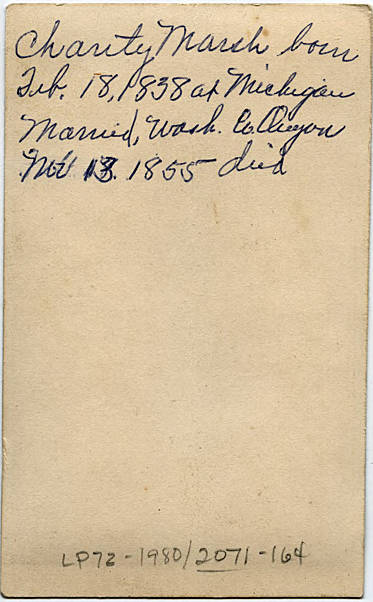 Charity Marsh born
Feb. 18, 1838 at Michigan
Married, Wash. Co Oregon
Nov 13. 1855 died
LP72-1980/2071-164